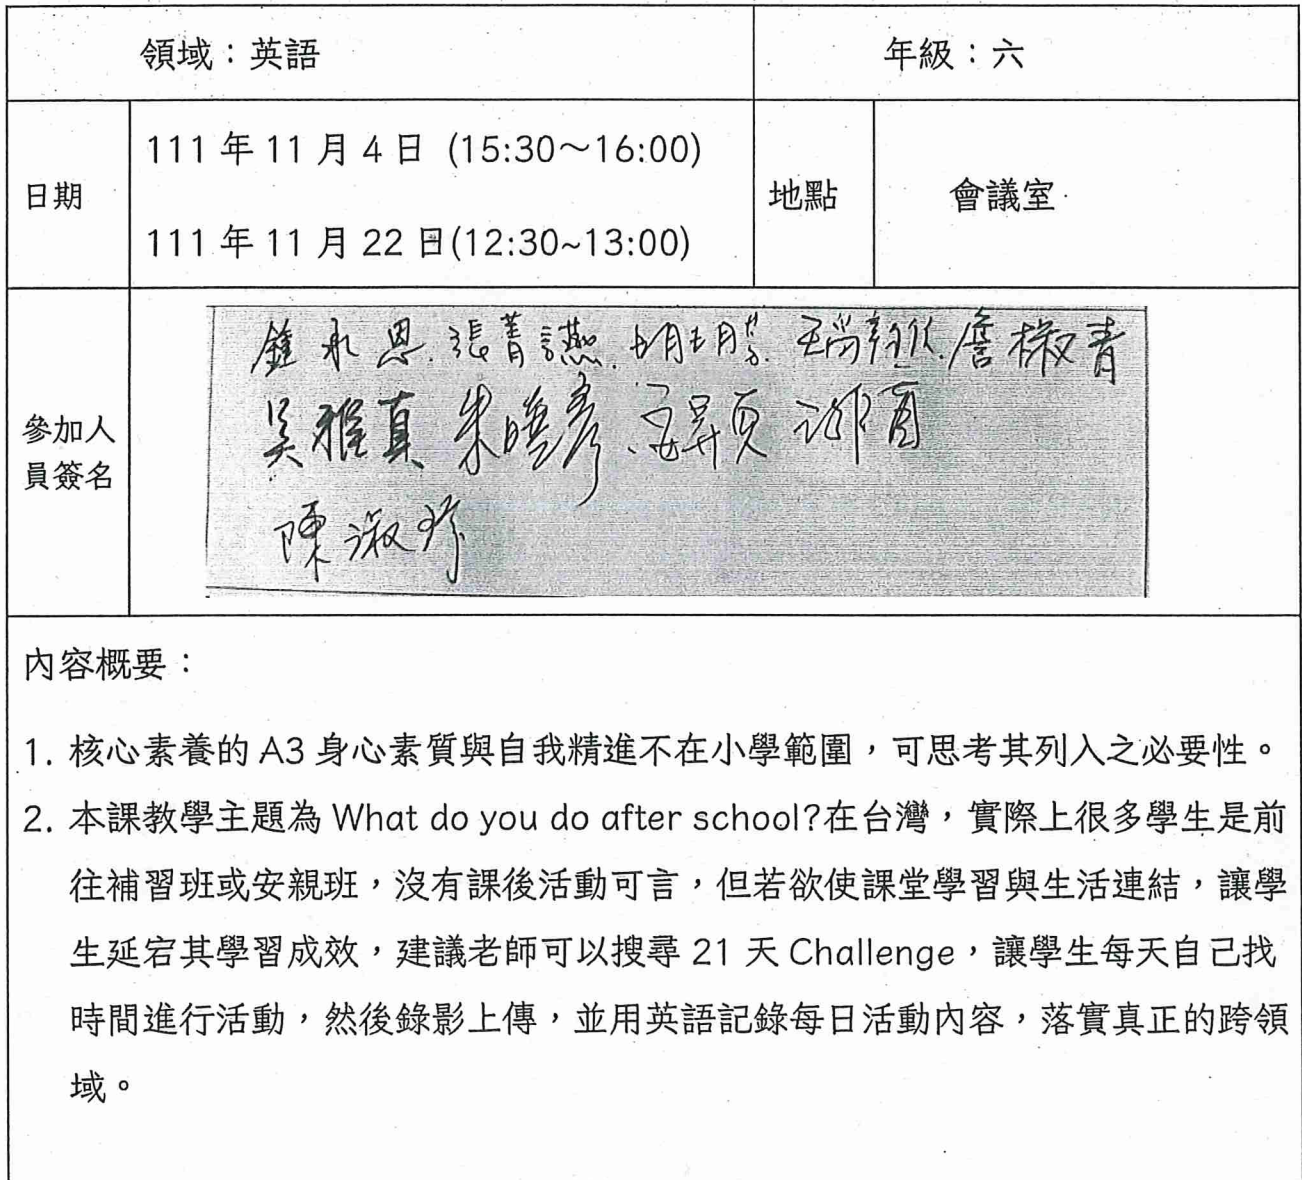 領域：英語 年級：六
111 年 11 月 4 日 (15:30～16:00)
日期 地點 會議室
111 年 11 月 22 日(12:30~13:00)
鍾永恩 張菁讌 詹椒青
吳雅真 朱曉彥
參加人
員簽名
陳淑珍
內容概要：
1. 核心素養的 A3 身心素質與自我精進不在小學範圍，可思考其列入之必要性。
2. 本課教學主題為 What do you do after school?在台灣，實際上很多學生是前
往補習班或安親班，沒有課後活動可言，但若欲使課堂學習與生活連結，讓學
生延宕其學習成效，建議老師可以搜尋 21 天 Challenge，讓學生每天自己找
時間進行活動，然後錄影上傳，並用英語記錄每日活動內容，落實真正的跨領
域。